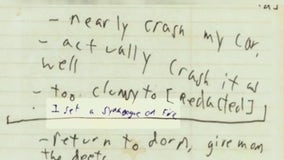 - nearly crash my car,
- actually crash it as
well
- too clumsy to [Redacted]
I set a synagogue on fire
- return to dorm, give mom
the deets